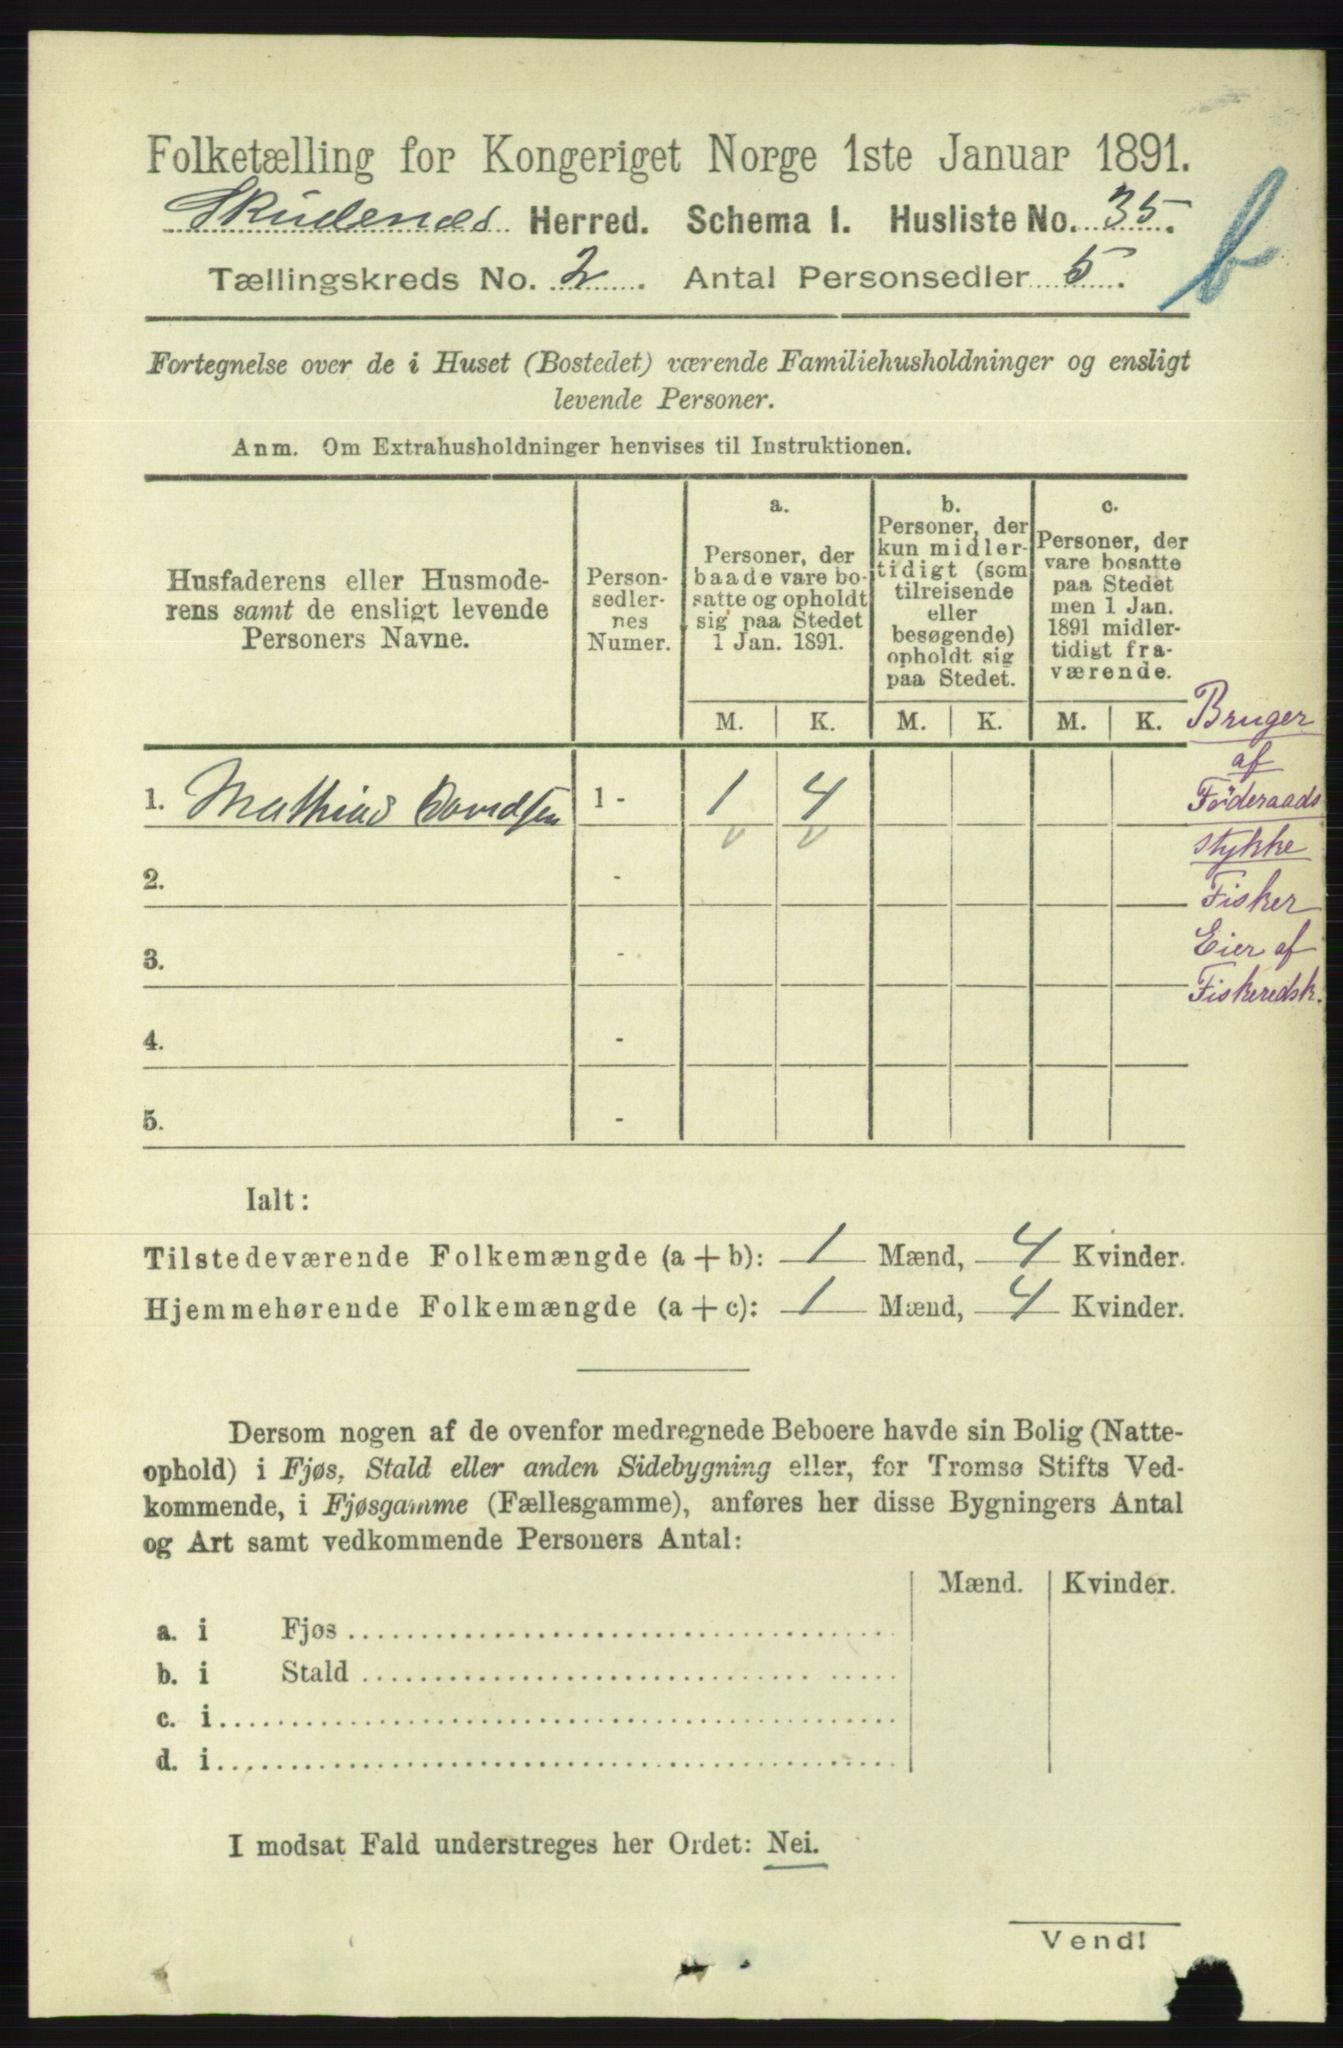 Folketælling for Kongeriget Norge 1ste Januar 1891.
Skudenæs Herred. Schema I. Husliste No. 35.
Tællingskreds No. 2. Antal Personsedler 5.
b
Fortegnelse over de i Huset (Bostedet) værende Familiehusholdninger og ensligt
levende Personer.
Anm. Om Extrahusholdninger henvises til Instruktionen.
Husfaderens eller Husmode-
rens samt de ensligt levende
Personers Navne.
Person-
sedler-
nes
Numer.
a.
Personer, der
baade vare bo-
satte og opholdt
sig paa Stedet
1 Jan. 1891.
b.
Personer, der
kun midler-
tidigt (som
tilreisende
eller
besøgende)
opholdt sig
paa Stedet.
c.
Personer, der
vare bosatte
paa Stedet
men 1 Jan.
1891 midler-
tidigt fra-
værende.
M. K. M. K. M. K.
1. Mathias Davidsen 1 - 1 4
2. -
3. -
4. -
5. -
Bruger
af
Föderaads
stykke
Fisker
Eier af
Fiskeredsk.
Ialt:
Tilstedeværende Folkemængde (a + b): 1 Mænd, 4 Kvinder.
Hjemmehørende Folkemængde (a + c): 1 Mænd, 4 Kvinder.
Dersom nogen af de ovenfor medregnede Beboere havde sin Bolig (Natte-
ophold) i Fjøs, Stald eller anden Sidebygning eller, for Tromsø Stifts Ved-
kommende, i Fjøsgamme (Fællesgamme), anføres her disse Bygningers Antal
og Art samt vedkommende Personers Antal:
Mænd. Kvinder.
a. i Fjøs
b. i Stald
c. i
d. i
I modsat Fald understreges her Ordet: Nei.
Vend!